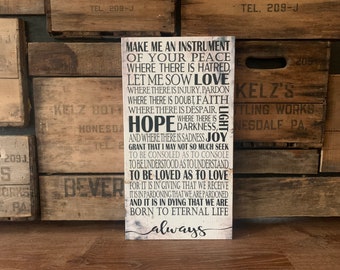 TEL. 209-J
MAKE ME AN INSTRUMENT
OF YOUR PEACE
WHERE THERE IS HATRED,
LET ME SOW LOVE
WHERE THERE IS INJURY, PARDON
WHERE THERE IS DOUBT, FAITH
WHERE THERE IS DESPAIR,
HOPE WHERE THERE IS
DARKNESS,
LIGHT
AND WHERE THERE IS SADNESS, JOY
GRANT THAT I MAY NOT SO MUCH SEEK
TO BE CONSOLED AS TO CONSOLE
TO BE UNDERSTOOD AS TO UNDERSTAND
TO BE LOVED AS TO LOVE
FOR IT IS IN GIVING THAT WE RECEIVE
IT IS IN PARDONING THAT WE ARE PARDONED
AND IT IS IN DYING THAT WE ARE
BORN TO ETERNAL LIFE
always
KELZ
BOT
HONESDAL
BEVER
KELZ'S
BOTTLING WORKS
HONESDALE PA.
TEL. 209-J